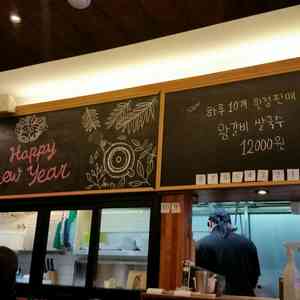 Happy
New Year
하루 10개 한정판매
왕갈비 쌀국수
12000원